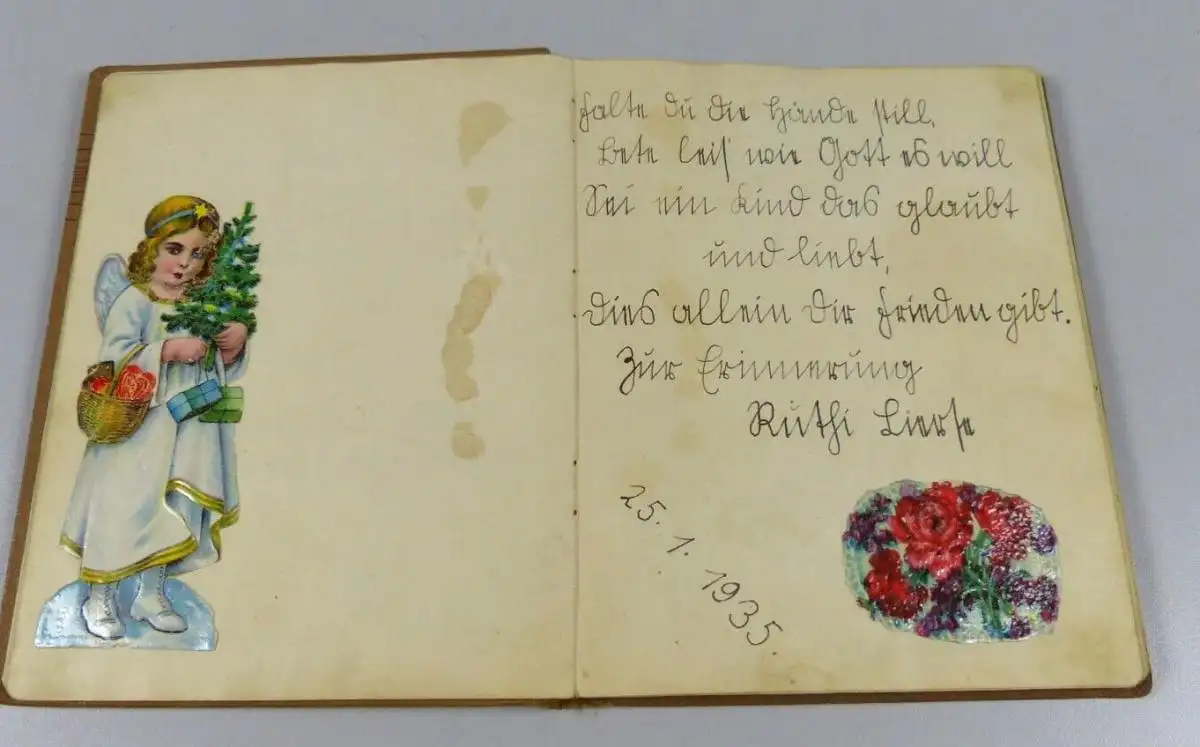 Falte du die Hände still,
Bete leis' wie Gott es will
Sei ein Kind das glaubt
und liebt,
Dies allein dir Frieden gibt.
Zur Erinnerung
Ruthi Lierse
25. 1. 1935.